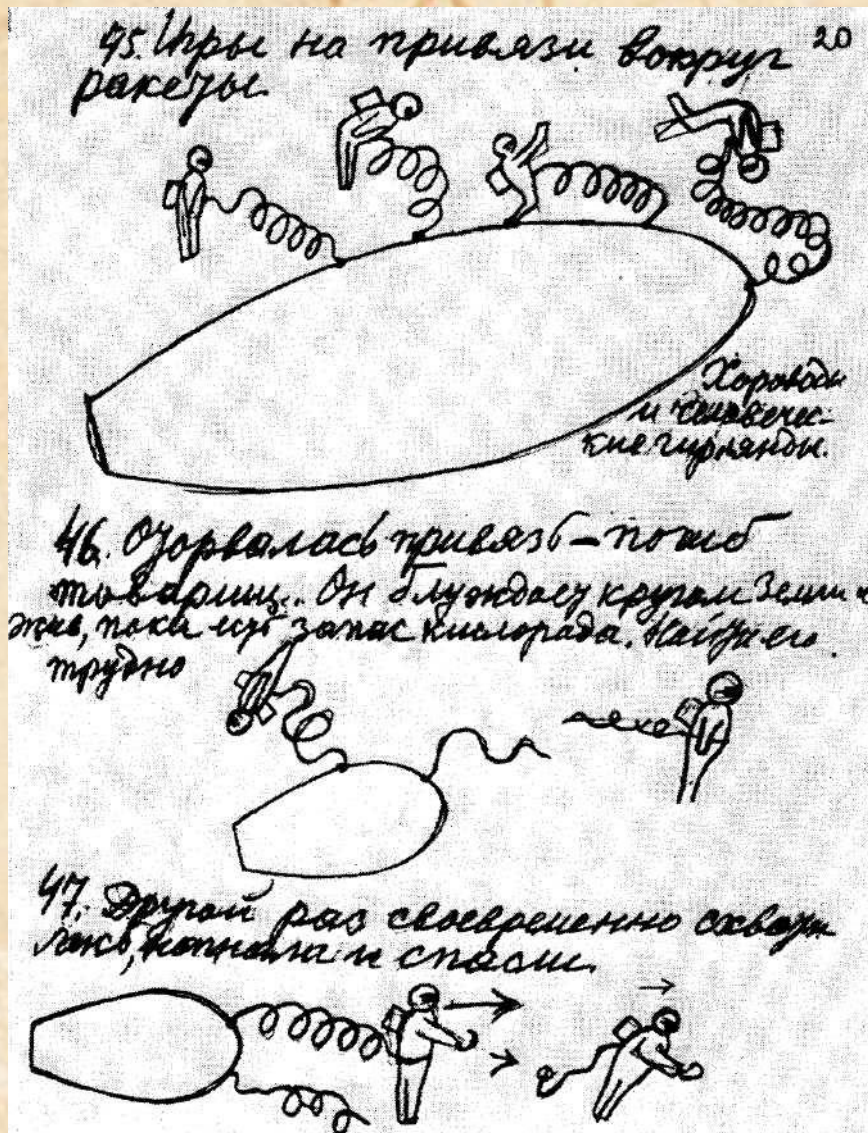 20
45. Игры на привязи вокруг
ракеты.
Хороводы
и человечес-
кие гирлянды.
46. Оторвалась привязь – погиб
товарищ.. Он блуждает кругом Земли и
жив, пока есть запас кислорода. Найти его
трудно
47. Другой раз своевременно схвати-
лись, нагнали и спасли.